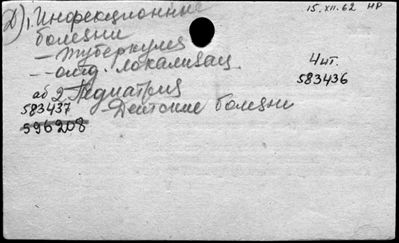 Д) 1. Инфекционные
15.XII.62 НР
болезни
— Туберкулез
— отд. локализац.
4 шт.
583436
аб 2 Педиатрия
583437 — Детские болезни
596208